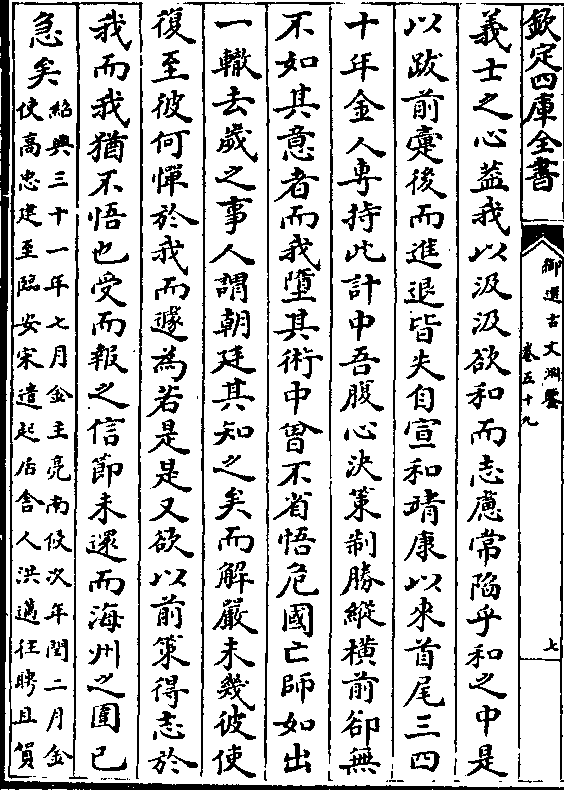 欽定四庫全書
御選古文淵鑒
卷五十九
七
義士之心蓋我以汲汲欲和而志慮常陷乎和之中是
以跋前疐後而進退皆失自宣和靖康以來首尾三四
十年金人專持此計中吾腹心決策制勝縱橫前卻無
不如其意者而我墮其術中曾不省悟危國亡師如出
一轍去歲之事人謂朝廷其知之矣而解嚴未幾彼使
復至彼何憚於我而遽為若是是又欲以前策得志於
我而我猶不悟也受而報之信節未還而海州之圍已
急矣
紹興三十一年七月金主亮南侵次年閏二月金
使高忠建至臨安宋遣起居舍人洪邁往聘且賀